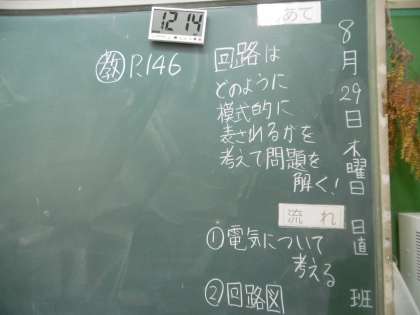 8月29日木曜日 日直 班
めあて
回路は
どのように
模式的に
表されるかを
考えて問題を
解く!
流れ
①電気について
考える
②回路図
教 P.146
12 14